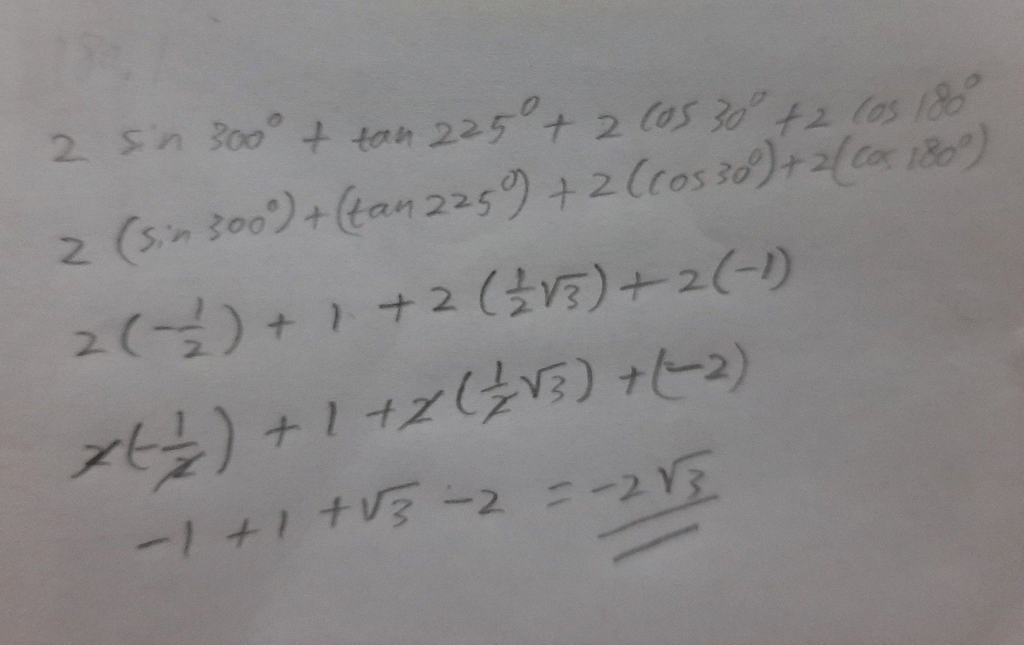 2 sin 300° + tan 225° + 2 cos 30° + 2 cos 180°
2 (sin 300°) + (tan 225°) + 2 (cos 30°) + 2 (cos 180°)
2 (-1/2) + 1 + 2 (1/2 √3) + 2 (-1)
2 (-1/2) + 1 + 2 (1/2 √3) + (-2)
-1 + 1 + √3 - 2 = -2√3